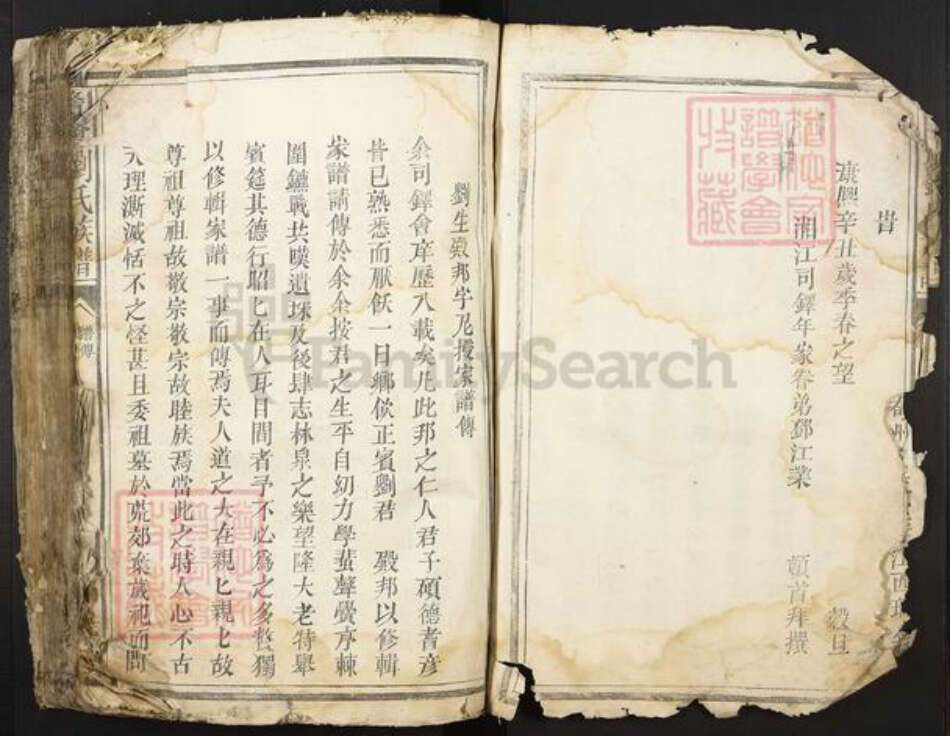 旹
漢興辛丑歲季春之望
穀旦
湘江司鐸年家眷弟鄧江業
頓首拜撰
劉生殿邦字 家譜傳
余司鐸會庠歷八載矣凡此邦之仁人君子碩德者彥
皆已熟悉而厭飫一日鄉飲正賓劉君 殿邦以修輯
家譜請傳於余余按君之生平自幼力學蜚聲黌序棘
圍鏖戰共嘆遺珠及後肆志林泉之樂望隆大老特舉
賓筵其德行昭匕在人耳目間者予不必為之多贅獨
以修輯家譜一事而傳焉夫人道之大在親匕親匕故
尊祖尊祖故敬宗敬宗故睦族焉當此之時人心不古
天理澌滅恬不之怪甚且委祖墓於荒郊棄歲祀而問
劉氏族譜
譜傳
FamilySearch
譜學會
收藏